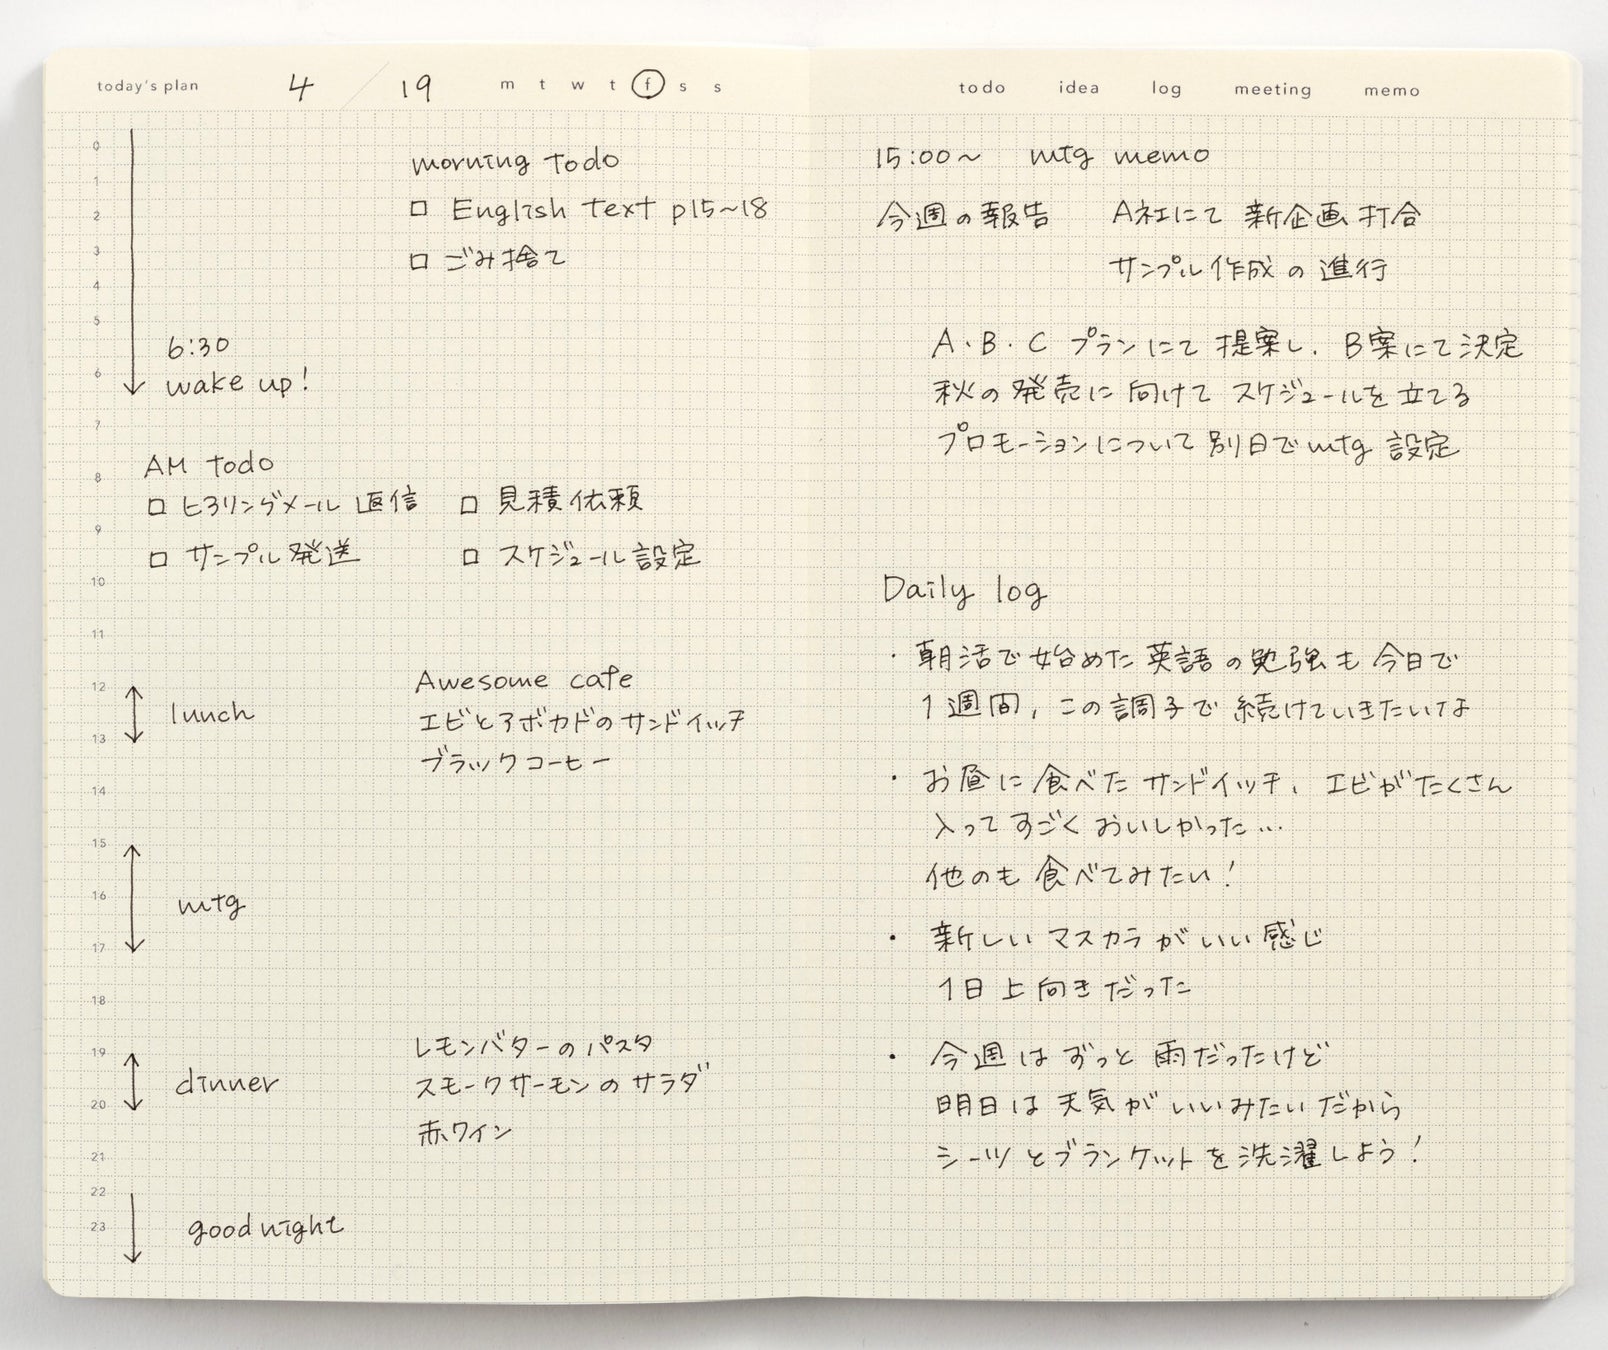 today's plan 4 / 19 m t w t f s s
0
1
2
3
4
5
6
7
8
9
10
11
12
13
14
15
16
17
18
19
20
21
22
23
morning todo
□ English text p15~18
□ ごみ捨て
6:30
wake up!
AM todo
□ ヒアリングメール 返信 □ 見積依頼
□ サンプル発送 □ スケジュール設定
lunch
Awesome cafe
エビとアボカドのサンドイッチ
ブラックコーヒー
mtg
dinner
レモンバターのパスタ
スモークサーモンのサラダ
赤ワイン
good night
todo idea log meeting memo
15:00〜 mtg memo
今週の報告 A社にて 新企画打合
サンプル作成の進行
A・B・C プランにて提案し、B案にて決定
秋の発売に向けてスケジュールを立てる
プロモーションについて別日でmtg 設定
Daily log
・朝活で始めた英語の勉強も今日で
1週間、この調子で続けていきたいな
・お昼に食べたサンドイッチ、エビがたくさん
入っててすごくおいしかった…
他のも食べてみたい!
・新しいマスカラがいい感じ
1日上向きだった
・今週はずっと雨だったけど
明日は天気がいいみたいだから
シーツとブランケットを洗濯しよう!